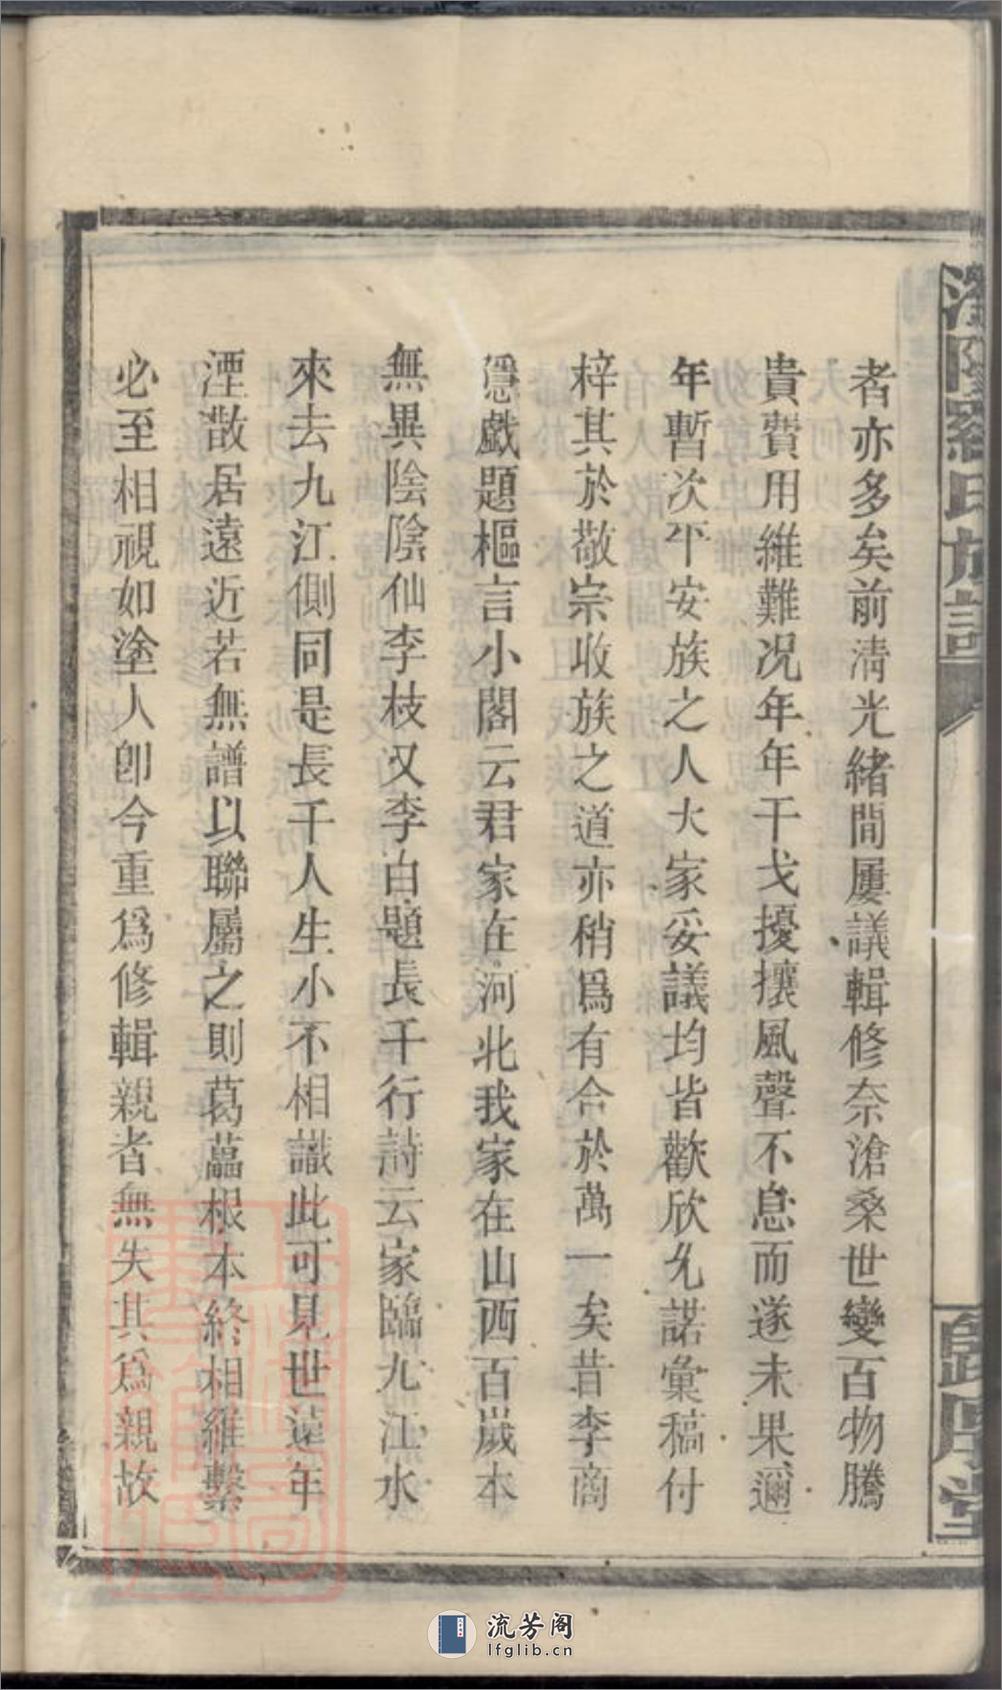 者亦多矣前清光緒間屢議輯修奈滄桑世變百物騰
貴費用維難况年年干戈擾攘風聲不息而遂未果邇
年暫次平安族之人大家妥議均皆歡欣允諾彙稿付
梓其於敬宗收族之道亦稍爲有合於萬一矣昔李商
隱戲題樞言小閣云君家在河北我家在山西百歲本
無異陰陰仙李枝又李白題長干行詩云家臨九江水
來去九江側同是長千人生小不相識此可見世遠年
湮散居遠近若無譜以聯屬之則葛藟根本終相維繫
必至相視如塗人卽今重爲修輯親者無失其爲親故
羅氏族譜
流芳阁
lfglib.cn